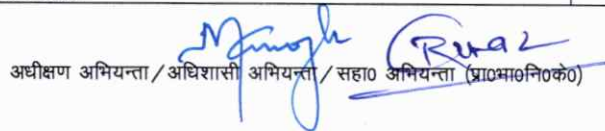 अधीक्षण अभियन्ता / अधिशासी अभियन्ता / सहा० अभियन्ता (प्रा०भा०नि०के०)